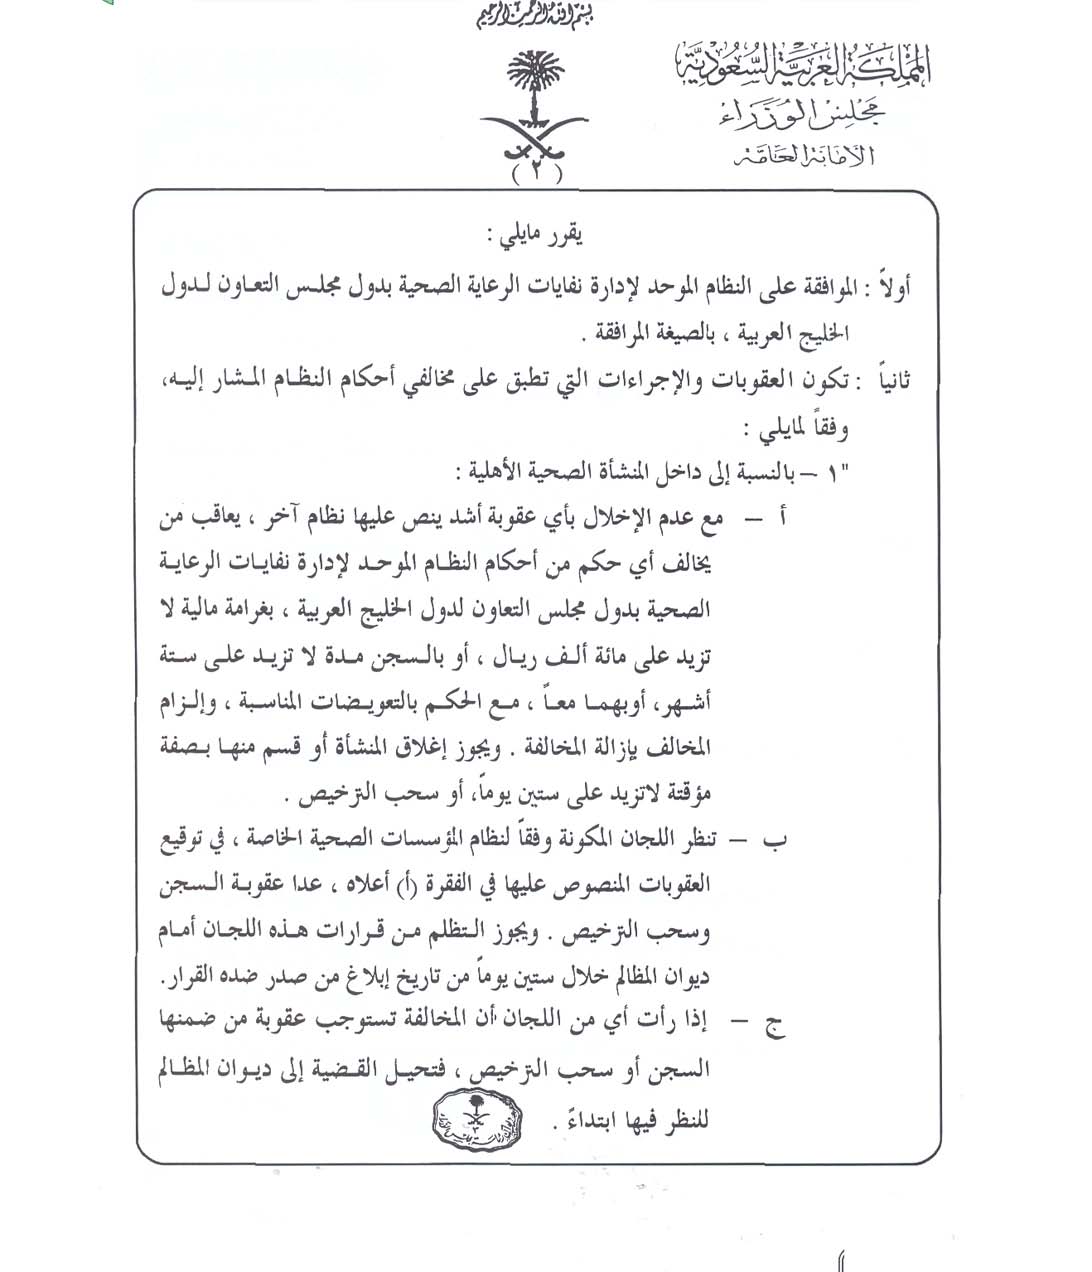 بسم الله الرحمن الرحيم
المملكة العربية السعودية
مجلس الوزراء
الأمانة العامة
(٢)
يقرر مايلي :
أولاً : الموافقة على النظام الموحد لإدارة نفايات الرعاية الصحية بدول مجلس التعاون لدول
الخليج العربية ، بالصيغة المرافقة .
ثانياً : تكون العقوبات والإجراءات التي تطبق على مخالفي أحكام النظام المشار إليه،
وفقاً لمايلي :
"١ – بالنسبة إلى داخل المنشأة الصحية الأهلية :
أ – مع عدم الإخلال بأي عقوبة أشد ينص عليها نظام آخر ، يعاقب من
يخالف أي حكم من أحكام النظام الموحد لإدارة نفايات الرعاية
الصحية بدول مجلس التعاون لدول الخليج العربية ، بغرامة مالية لا
تزيد على مائة ألف ريال ، أو بالسجن مدة لا تزيد على ستة
أشهر، أوبهما معاً ، مع الحكم بالتعويضات المناسبة ، وإلزام
المخالف بإزالة المخالفة . ويجوز إغلاق المنشأة أو قسم منها بصفة
مؤقتة لاتزيد على ستين يوماً، أو سحب الترخيص .
ب – تنظر اللجان المكونة وفقاً لنظام المؤسسات الصحية الخاصة ، في توقيع
العقوبات المنصوص عليها في الفقرة (أ) أعلاه ، عدا عقوبة السجن
وسحب الترخيص . ويجوز التظلم من قرارات هذه اللجان أمام
ديوان المظالم خلال ستين يوماً من تاريخ إبلاغ من صدر ضده القرار.
ج – إذا رأت أي من اللجان أن المخالفة تستوجب عقوبة من ضمنها
السجن أو سحب الترخيص ، فتحيل القضية إلى ديوان المظالم
للنظر فيها ابتداءً .